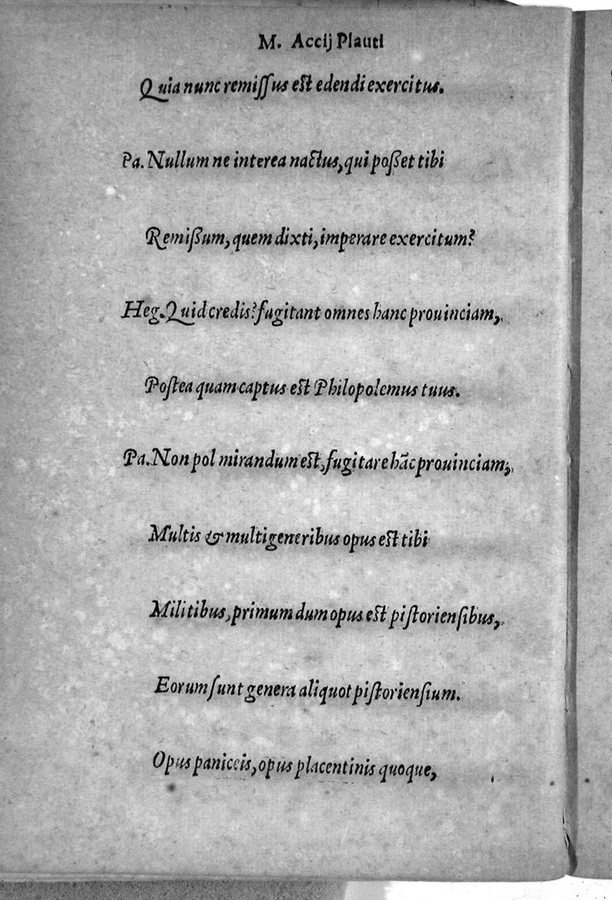 M. Accij Plauti
Quia nunc remiſſus est edendi exercitus.
Pa. Nullum ne interea nactus, qui poßet tibi
Remißum, quem dixti, imperare exercitum?
Heg. Quid credis? fugitant omnes hanc prouinciam,
Poſtea quam captus est Philopolemus tuus.
Pa. Non pol mirandum est, fugitare hāc prouinciam;
Multis & multigeneribus opus est tibi
Militibus, primum dum opus est piſtorienſibus,
Eorum ſunt genera aliquot piſtorienſium.
Opus paniceis, opus placentinis quoque,